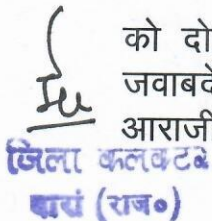 को दो
जवाबदे
आराजी
जिला कलक्टर
बारां (राज०)